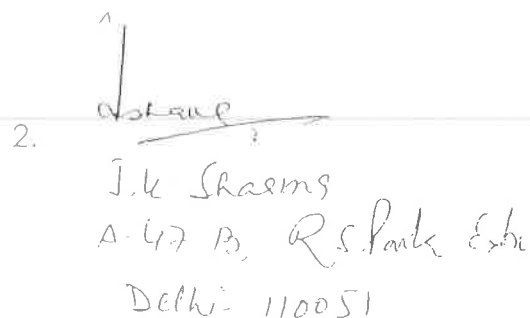 2.
J.K Sharma
A-47 B, R.S. Park Extn
Delhi- 110051